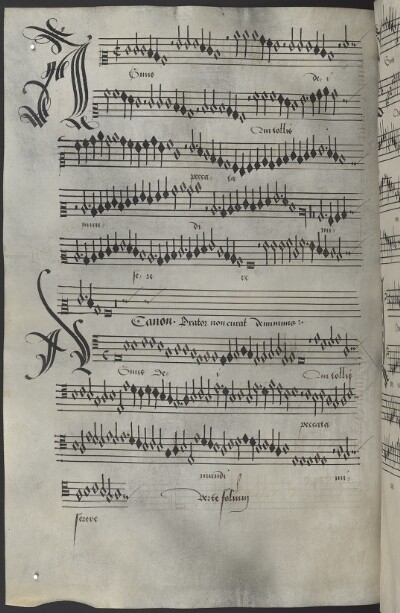 A
gnus de i
Qui tollis
pecca ta
mun di mi
se re re
Canon. Prætor non curat de minimis.
A
gnus De i Qui tollis
peccata
mundi mi
serere
Verte folium